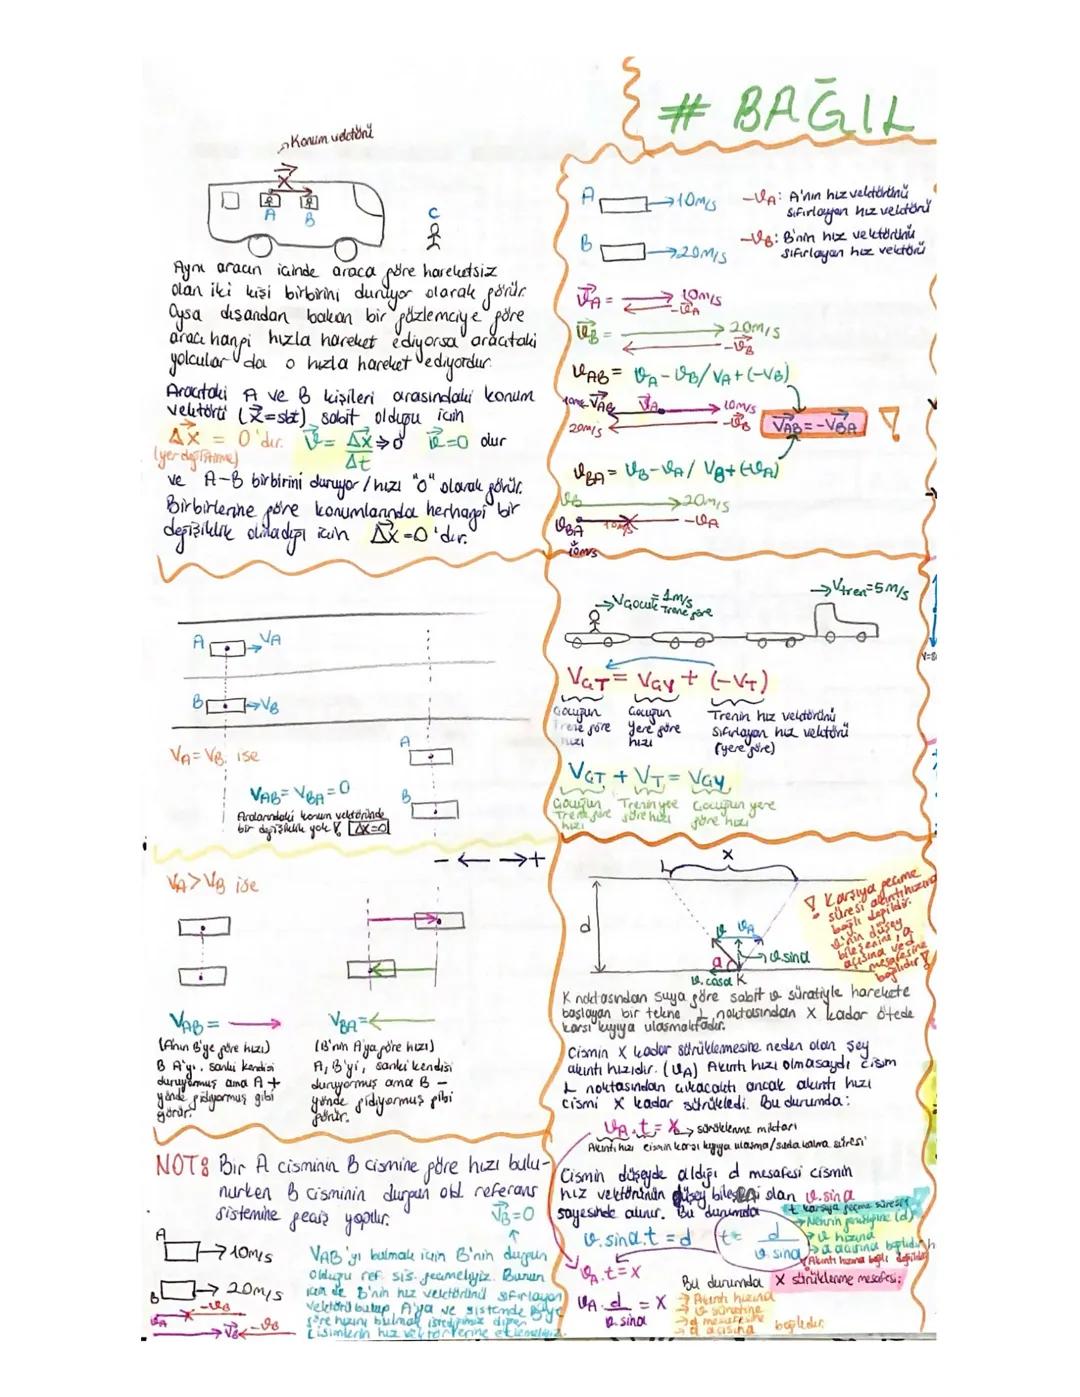 # BAĞIL
Konum vektörü
X
A B
C
Aynı aracın içinde araca göre hareketsiz
olan iki kişi birbirini duruyor olarak görür.
Oysa dışarıdan bakan bir gözlemciye göre
araç hangi hızla hareket ediyorsa araçtaki
yolcular da o hızla hareket ediyordur.
Araçtaki A ve B kişileri arasındaki konum
vektörü (X=sbt) sabit olduğu için
ΔX = 0'dır. V = ΔX/Δt ⇒ 0 V=0 olur
(yer değiştirme)
ve A-B birbirini duruyor/hızı "0" olarak görür.
Birbirlerine göre konumlarında herhangi bir
değişiklik olmadığı için ΔX=0'dır.
A → 10m/s
B → 20m/s
-VA: A'nın hız vektörünü
sıfırlayan hız vektörü
-VB: B'nin hız vektörünü
sıfırlayan hız vektörü
VA = 10m/s
-VA
VB = 20m/s
-VB
VAB = VA-VB / VA+(-VB)
10m/s VAB VA 10m/s
20m/s -VB
VAB = -VBA
VBA = VB-VA / VB+(-VA)
VB 20m/s
VBA 10m/s -VA
10m/s
A VA
B VB
VA=VB ise
VAB=VBA=0
Aralarındaki konum vektöründe
bir değişiklik yok! ΔX=0
A
B
VÇocuk=1m/s
Trene göre
Vtren=5m/s
VÇT = VÇY + (-VT)
Çocuğun
Trene göre
hızı
Çocuğun
yere göre
hızı
Trenin hız vektörünü
sıfırlayan hız vektörü
(yere göre)
VÇT + VT = VÇY
Çocuğun
Trene göre
hızı
Trenin yere
göre hızı
Çocuğun yere
göre hızı
- ← → +
VA>VB ise
VAB =
(A'nın B'ye göre hızı)
B A'yı, sanki kendisi
duruyormuş ama A +
yönde gidiyormuş gibi
görür.
VBA =
(B'nin A'ya göre hızı)
A, B'yi, sanki kendisi
duruyormuş ama B -
yönde gidiyormuş gibi
görür.
L X
d
V VA
V.sinα
α
V.cosα K
! Karşıya geçme
süresi akıntı hızına
bağlı değildir.
V'nin düşey
bileşenine, α
açısına ve d
mesafesine
bağlıdır!
K noktasından suya göre sabit V süratiyle harekete
başlayan bir tekne L noktasından X kadar ötede
karşı kıyıya ulaşmaktadır.
Cismin X kadar sürüklenmesine neden olan şey
akıntı hızıdır. (VA) Akıntı hızı olmasaydı cisim
L noktasından çıkacaktı ancak akıntı hızı
cismi X kadar sürükledi. Bu durumda:
VA.t = X → sürüklenme miktarı
Akıntı hızı cismin karşı kıyıya ulaşma/suda kalma süresi
Cismin düşeyde aldığı d mesafesi cismin
hız vektörünün düşey bileşeni olan V.sinα
sayesinde alınır. Bu durumda
V.sinα.t = d
t = d/V.sinα
t karşıya geçme süresi
→ Nehrin genişliğine (d)
→ V hızına
→ α açısına bağlıdır
Akıntı hızına bağlı değildir
VA.t=X
VA.d/V.sinα = X
Bu durumda X sürüklenme mesafesi;
→ Akıntı hızına
→ V süratine
→ d mesafesine
→ α açısına bağlıdır.
NOT: Bir A cisminin B cismine göre hızı bulu-
nurken B cisminin durgun old. referans
sistemine geçiş yapılır.
VB=0
A → 10m/s
B → 20m/s
VA -VB
VB -VB
VAB'yi bulmak için B'nin durgun
olduğu ref. sis. geçmeliyiz. Bunun
için de B'nin hız vektörünü sıfırlayan
vektörü bulup A'ya ve sistemde B'ye
göre hızını bulmak istediğimiz diğer
cisimlerin hız vektörlerine eklemeliyiz.